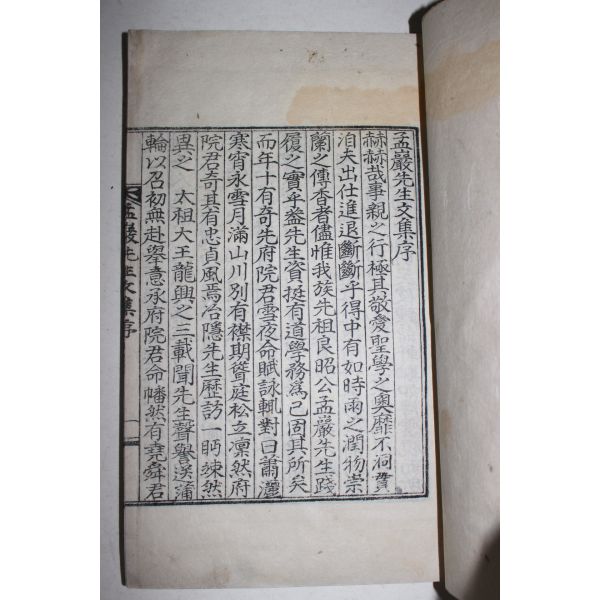 孟巖先生文集序
赫赫哉事親之行極其敬愛聖學之奧靡不洞貫
洎夫出仕進退斷斷乎得中有如時雨之潤物崇
蘭之傳香者儘惟我族先祖良昭公孟巖先生踐
履之實乎盖先生資挺有道學務爲己固其所矣
而年十有奇先府院君雪夜命賦詠輒對曰蕭灑
寒宵永雪月滿山川別有襟期聳庭松立凛然府
院君奇其有忠貞風焉冶隱先生歷訪一眄竦然
異之 太祖大王龍興之三載聞先生聲譽送蒲
輪以召初無赴擧意承府院君命幡然有堯舜君
孟巖先生文集序 一